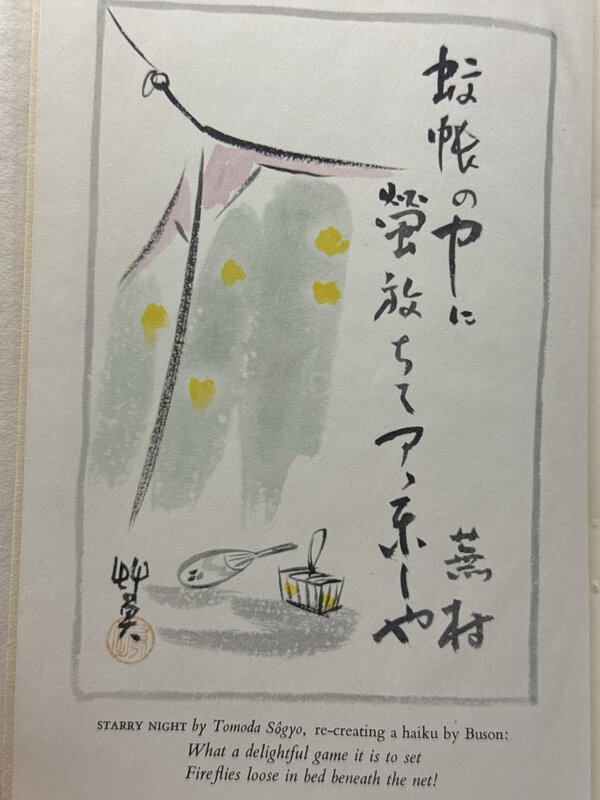 蚊帳の中に
螢放ちてアヽ楽しや
蕪村
艸魚
STARRY NIGHT by Tomoda Sôgyo, re-creating a haiku by Buson:
What a delightful game it is to set
Fireflies loose in bed beneath the net!